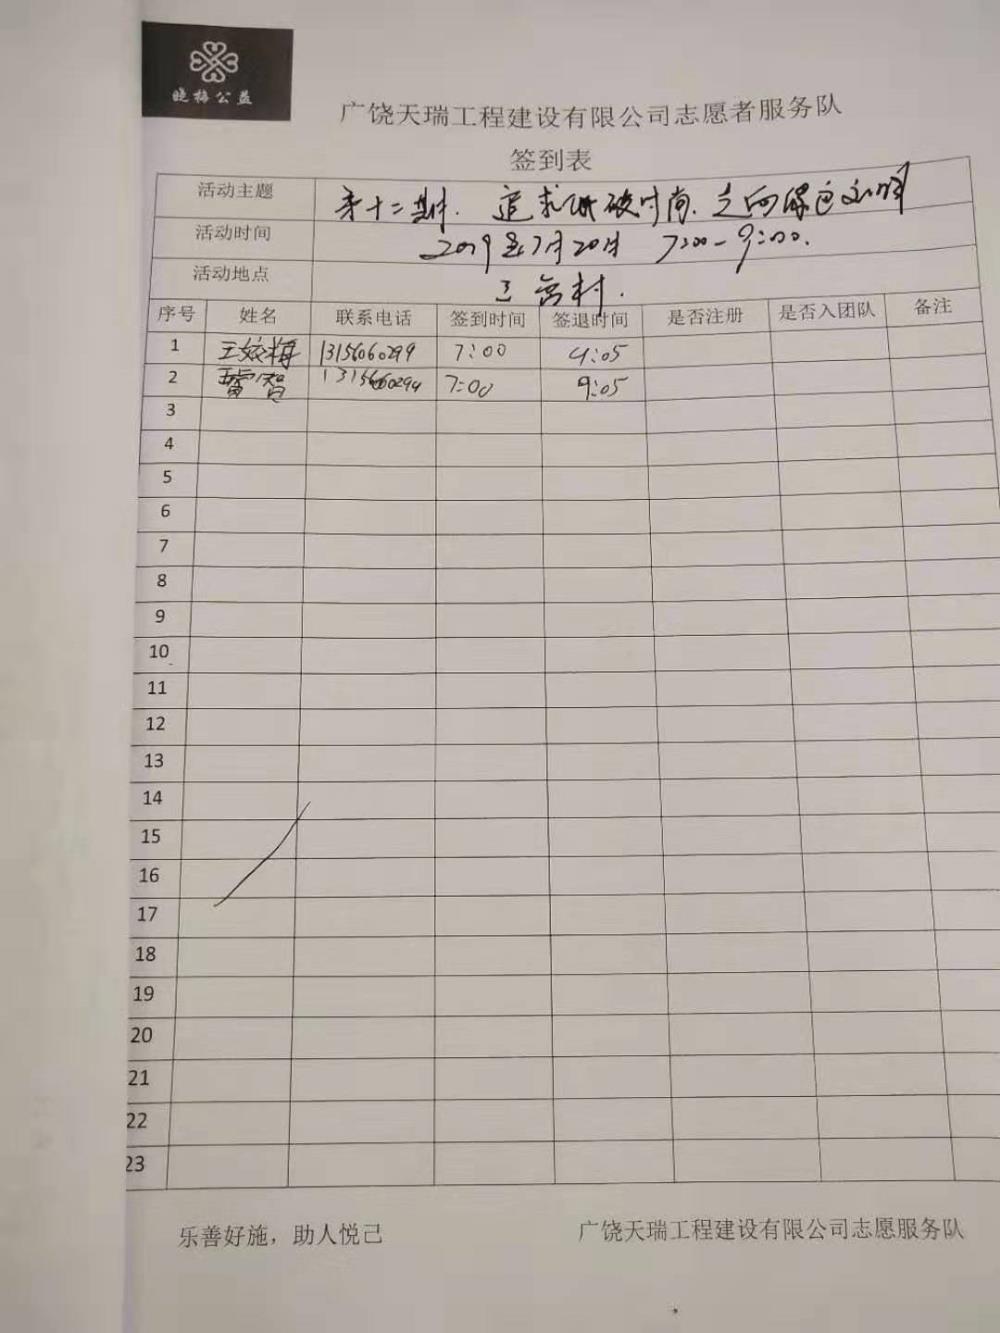 晓梅公益
广饶天瑞工程建设有限公司志愿者服务队
签到表
活动主题 第十二期. 追求低碳时尚. 走向绿色文明
活动时间 2019年7月20日 7:00-9:00.
活动地点 村.
序号 姓名 联系电话 签到时间 签退时间 是否注册 是否入团队 备注
1 王 梅 13156060299 7:00 9:05
2 睿智 13156060299 7:00 9:05
3
4
5
6
7
8
9
10
11
12
13
14
15
16
17
18
19
20
21
22
23
乐善好施，助人悦己 广饶天瑞工程建设有限公司志愿服务队